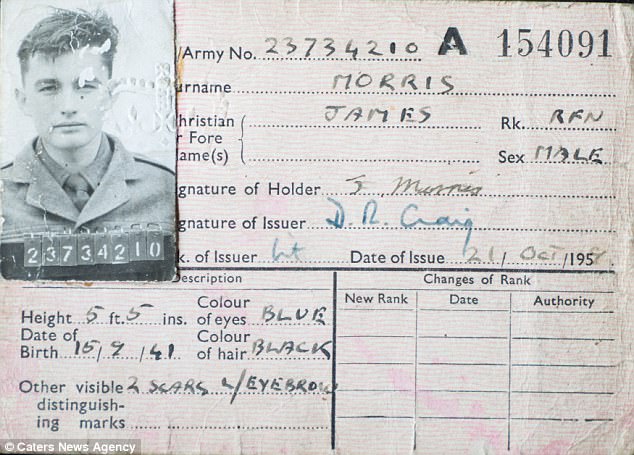 /Army No. 23734210 A 154091
urname MORRIS
hristian JAMES Rk. RFN
r Fore
ame(s) Sex MALE
ignature of Holder J Morris
ignature of Issuer D. R. Craig
k. of Issuer Lt Date of Issue 21/ Oct/195
23734210
Description
Changes of Rank
New Rank Date Authority
Height 5 ft. 5 ins. Colour of eyes BLUE
Date of Birth 15/9/41 Colour of hair BLACK
Other visible distinguish-ing marks 2 SCARS L/EYEBROW
© Caters News Agency